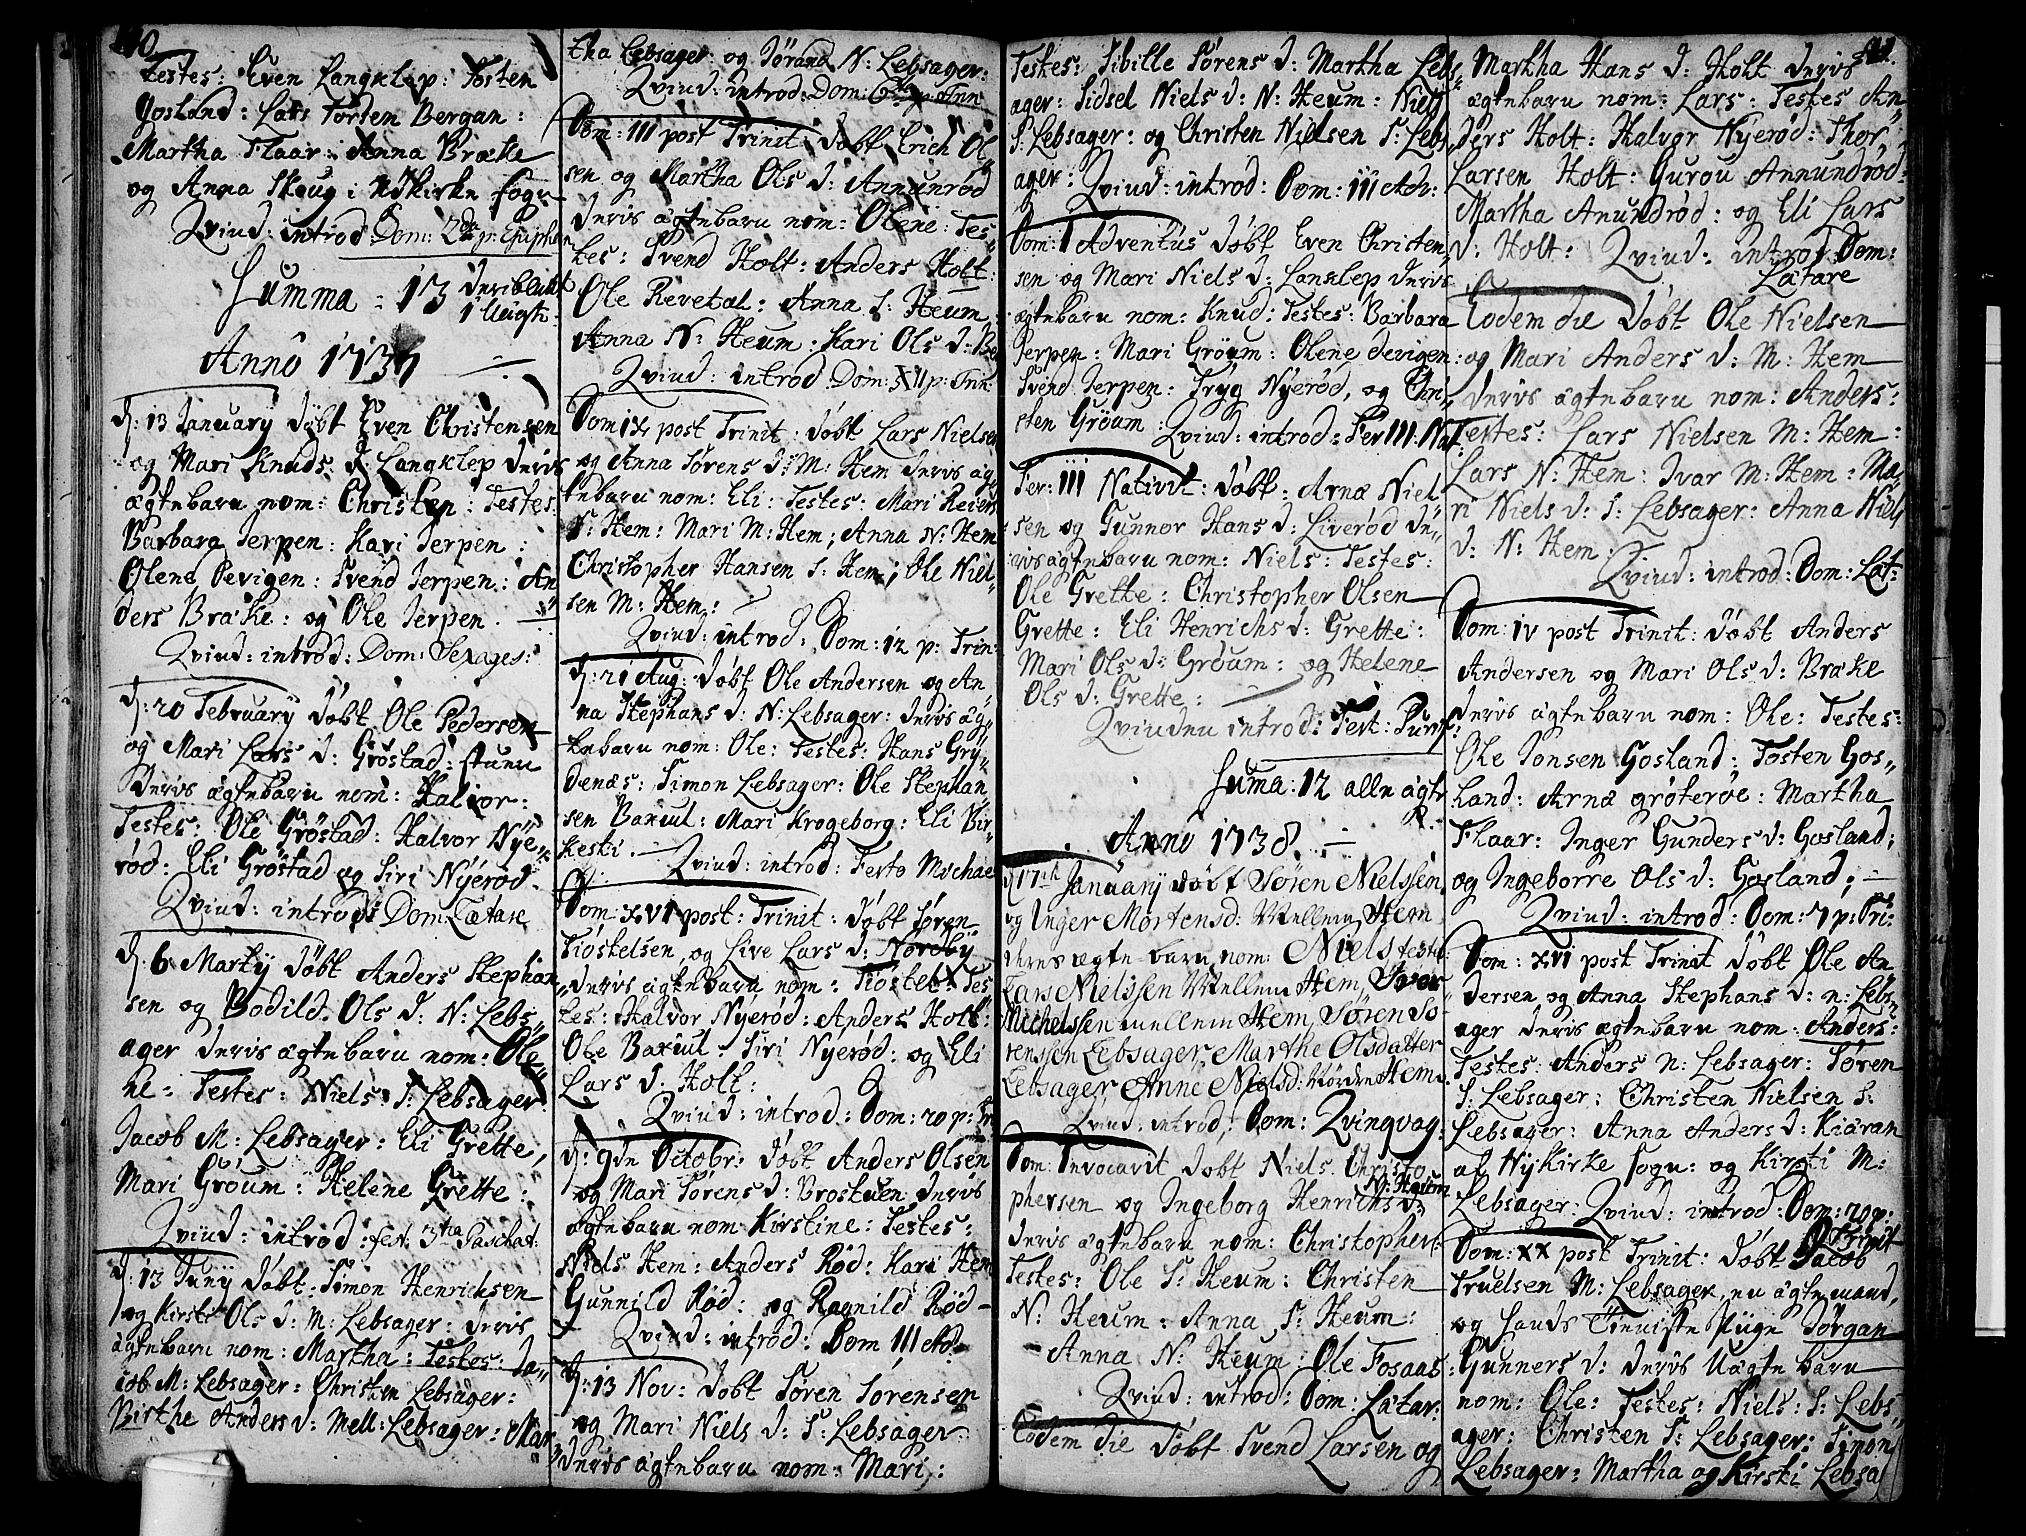 110
Testes: Even Langklep: Tosten
Gosland: Lars Torsten Bergan:
Martha Flaar: Anna Bræke
og Anna Skoug i Nÿkirke sogn
Qvind: introd: Dom: 2da p: Epiphan
Summa = 13 deriblant
1 Uægte:
Anno 1737
d: 13 January döbt Even Christensen
og Mari Knuds d: Langklep deris
ægtebarn nom: Christen: Testes:
Barbara Jerpen: Kari Jerpen:
Olene Devigen: Svend Jerpen: An„
ders Bræke: og Ole Jerpen.
Qvind: introd: Dom: Sexages:
d: 20 February döbt Ole Pedersen
og Mari Lars d: Gröstad:
deris ægtebarn nom: Halvor:
Testes: Ole Gröstad: Halvor Nÿe„
röd: Eli Gröstad og Siri Nÿeröd.
Qvind: introd: Dom: Lætare
d: 6 Martÿ döbt Anders Stephan
sen og Bodild Ols d: N: Lebs„
ager deris ægtebarn nom: Ole„
ne: Testes: Niels S: Lebsager:
Jacob M: Lebsager: Eli Grette,
Mari Gröum: Helene Grette:
Qvind: introd: fer: 3tia Paschat:
d: 13 Junÿ döbt Simon Henrichsen
og Kirsti Ols d: M: Lebsager: deris
ægtebarn nom: Martha: Testes: Ja„
cob M: Lebsager: Christen Lebsager:
Birthe Anders d: Mell: Lebsager: Mar„
tha Lebsager: og Jörand N: Lebsager:
Qvind: introd: Dom: 6 p: Trin
Dom: III post Trinit: döbt Erich Ol„
sen og Martha Ols d: Annunröd
deris ægtebarn nom: Olene: Tes„
tes: Svend Holt: Anders Holt:
Ole Revetal: Anna S: Heum:
Anna N: Heum: Kari Ols d:
Qvind: introd: Dom: XII p: Trin
Dom IX post Trinit: döbt Lars Nielsen
og Anna Sörens d: M: Hem deris æg„
tebarn nom: Eli: Testes: Mari Reiers
S: Hem: Mari M: Hem; Anna N: Hem
Christopher Hansen S: Hem; Ole Niel„
sen M: Hem:
Qvind: introd: Dom: 12 p: Trin:
d: 21 Aug: döbt Ole Andersen og An„
na Stephans d: N: Lebsager: deris æg„
tebarn nom: Ole: Testes: Hans Grÿ„
denæs: Simon Lebsager: Ole Stephan
sen Baxiul: Mari Krogeborg: Eli Bir„
keski.
Qvind: introd: Festo Michael
Dom: XVI post: Trinit: döbt Sören
Tiöstelsen, og Live Lars d: Nordbÿ
deris ægtebarn nom: Tiöstel: Tes„
tes: Halvor Nÿeröd: Anders Holt:
Ole Baxiul: Siri Nyeröd: og Eli
Lars d: Holt:
Qvind: introd: Dom: 20 p: Tr
d: 9de Octobr: döbt Anders Olsen
og Mari Sörens d: Broskuen deris
ægtebarn nom: Kirstine: Testes:
Niels Hem: Anders Röd: Kari Hem
Gunnild Röd: og Ragnild Röd
Qvind: introd: Dom III Ad:
d: 13 Nov: döbt Sören Sörensen
og Mari Niels d: S: Lebsager:
deris ægtebarn nom: Mari:
111.
Testes: Sibille Sörens d: Martha Lebs„
ager: Sidsel Niels d: N: Heum: Niels
S: Lebsager: og Christen Nielsen S: Lebs„
ager: Qvind: introd: Dom: III Adv:
Dom: I Adventus döbt Even Christen„
sen og Mari Niels d: Lanklep deris
ægtebarn nom: Knud: Testes: Barbara
Jerpen: Mari Gröum: Olene Devigen:
Svend Jerpen: Tryg Nÿeröd, og Chri„
sten Gröum: Qvind: introd: Fer III: Nat
Fer: III Nativit: döbt: Arne Niel„
sen og Gunnor Hans d: Liveröd de„
ris ægtebarn nom: Niels: Testes:
Ole Grette: Christopher Olsen
Grette: Eli Henrichs d: Grette:
Mari Ols d: Gröum: og Helene
Ols d: Grette:
Qvinden introd: Fest: Purif:
Suma: 12 alle ægte
Anno 1738.
d 17th January döbt Sören Nielssen
og Inger Mortensd: Mellem Hem
deres ægte-barn nom: Niels testes:
Lars Nielssen Mellem Hem, Iver
Michelssen mellem Hem, Sören Sö-
renssen Lebsager, Marthe Olsdatter
Lebsager, Anne Nielsd: Nordre Hem.
Qvind: introd: Dom: Qvinqvag:
Dom: Invocavit döbt Niels Christo
phersen og Ingeborg Henrichs d: N: Heum
deris ægtebarn nom: Christopher:
Testes: Ole S: Heum: Christen
N: Heum: Anna S: Heum:
Anna N: Heum: Ole Fosaas:
Qvind: introd: Dom: Lætar:
Eodem die döbt Svend Larsen og
Martha Hans d: Holt deris
ægtebarn nom: Lars: Testes An„
ders Holt: Halvor Nyeröd: Thor„
Larsen Holt: Gurou Annundröd:
Martha Anundröd: og Eli Lars
d: Holt: Qvind: introd Dom:
Lætare
Eodem die döbt Ole Nielsen
og Mari Anders d: M: Hem
deris ægtebarn nom: Anders:
Testes: Lars Nielsen M: Hem:
Lars N: Hem: Ivar M: Hem: Ma„
ri Niels d: S: Lebsager: Anna Niels
d: N: Hem:
Qvind: introd: Dom: Læt:
Dom: IV post Trinit: döbt Anders
Andersen og Mari Ols d: Bræke
deris ægtebarn nom: Ole: Testes:
Ole Jonsen Gosland: Tosten Gos„
land: Arne gröteröe: Martha
Flaar: Inger Gunders d: Gosland;
og Ingeborre Ols d: Gosland;
Qvind: introd: Dom: 7 p: Tri:
Dom: XVI post Trinit döbt Ole An„
dersen og Anna Stephans d: n: Lebs„
ager deris ægtebarn nom: Anders:
Testes: Anders n: Lebsager: Sören
S: Lebsager: Christen Nielsen S:
Lebsager: Anna Anders d: Kiæran
af Nÿkirke sogn: og Kirsti M:
Lebsager: Qvind: introd: Dom: 20 p:
Trinit
Dom: XX post Trinit: döbt Jacob
Truelsen M: Lebsager, en ægtemand,
og hands Tieniste pÿge Jörgan
Gunners d: deris Uægte barn
nom: Ole: Testes: Niels: S: Lebs„
ager: Christen S: Lebsager: Simon
Lebsager: Martha og Kirsti Lebsa